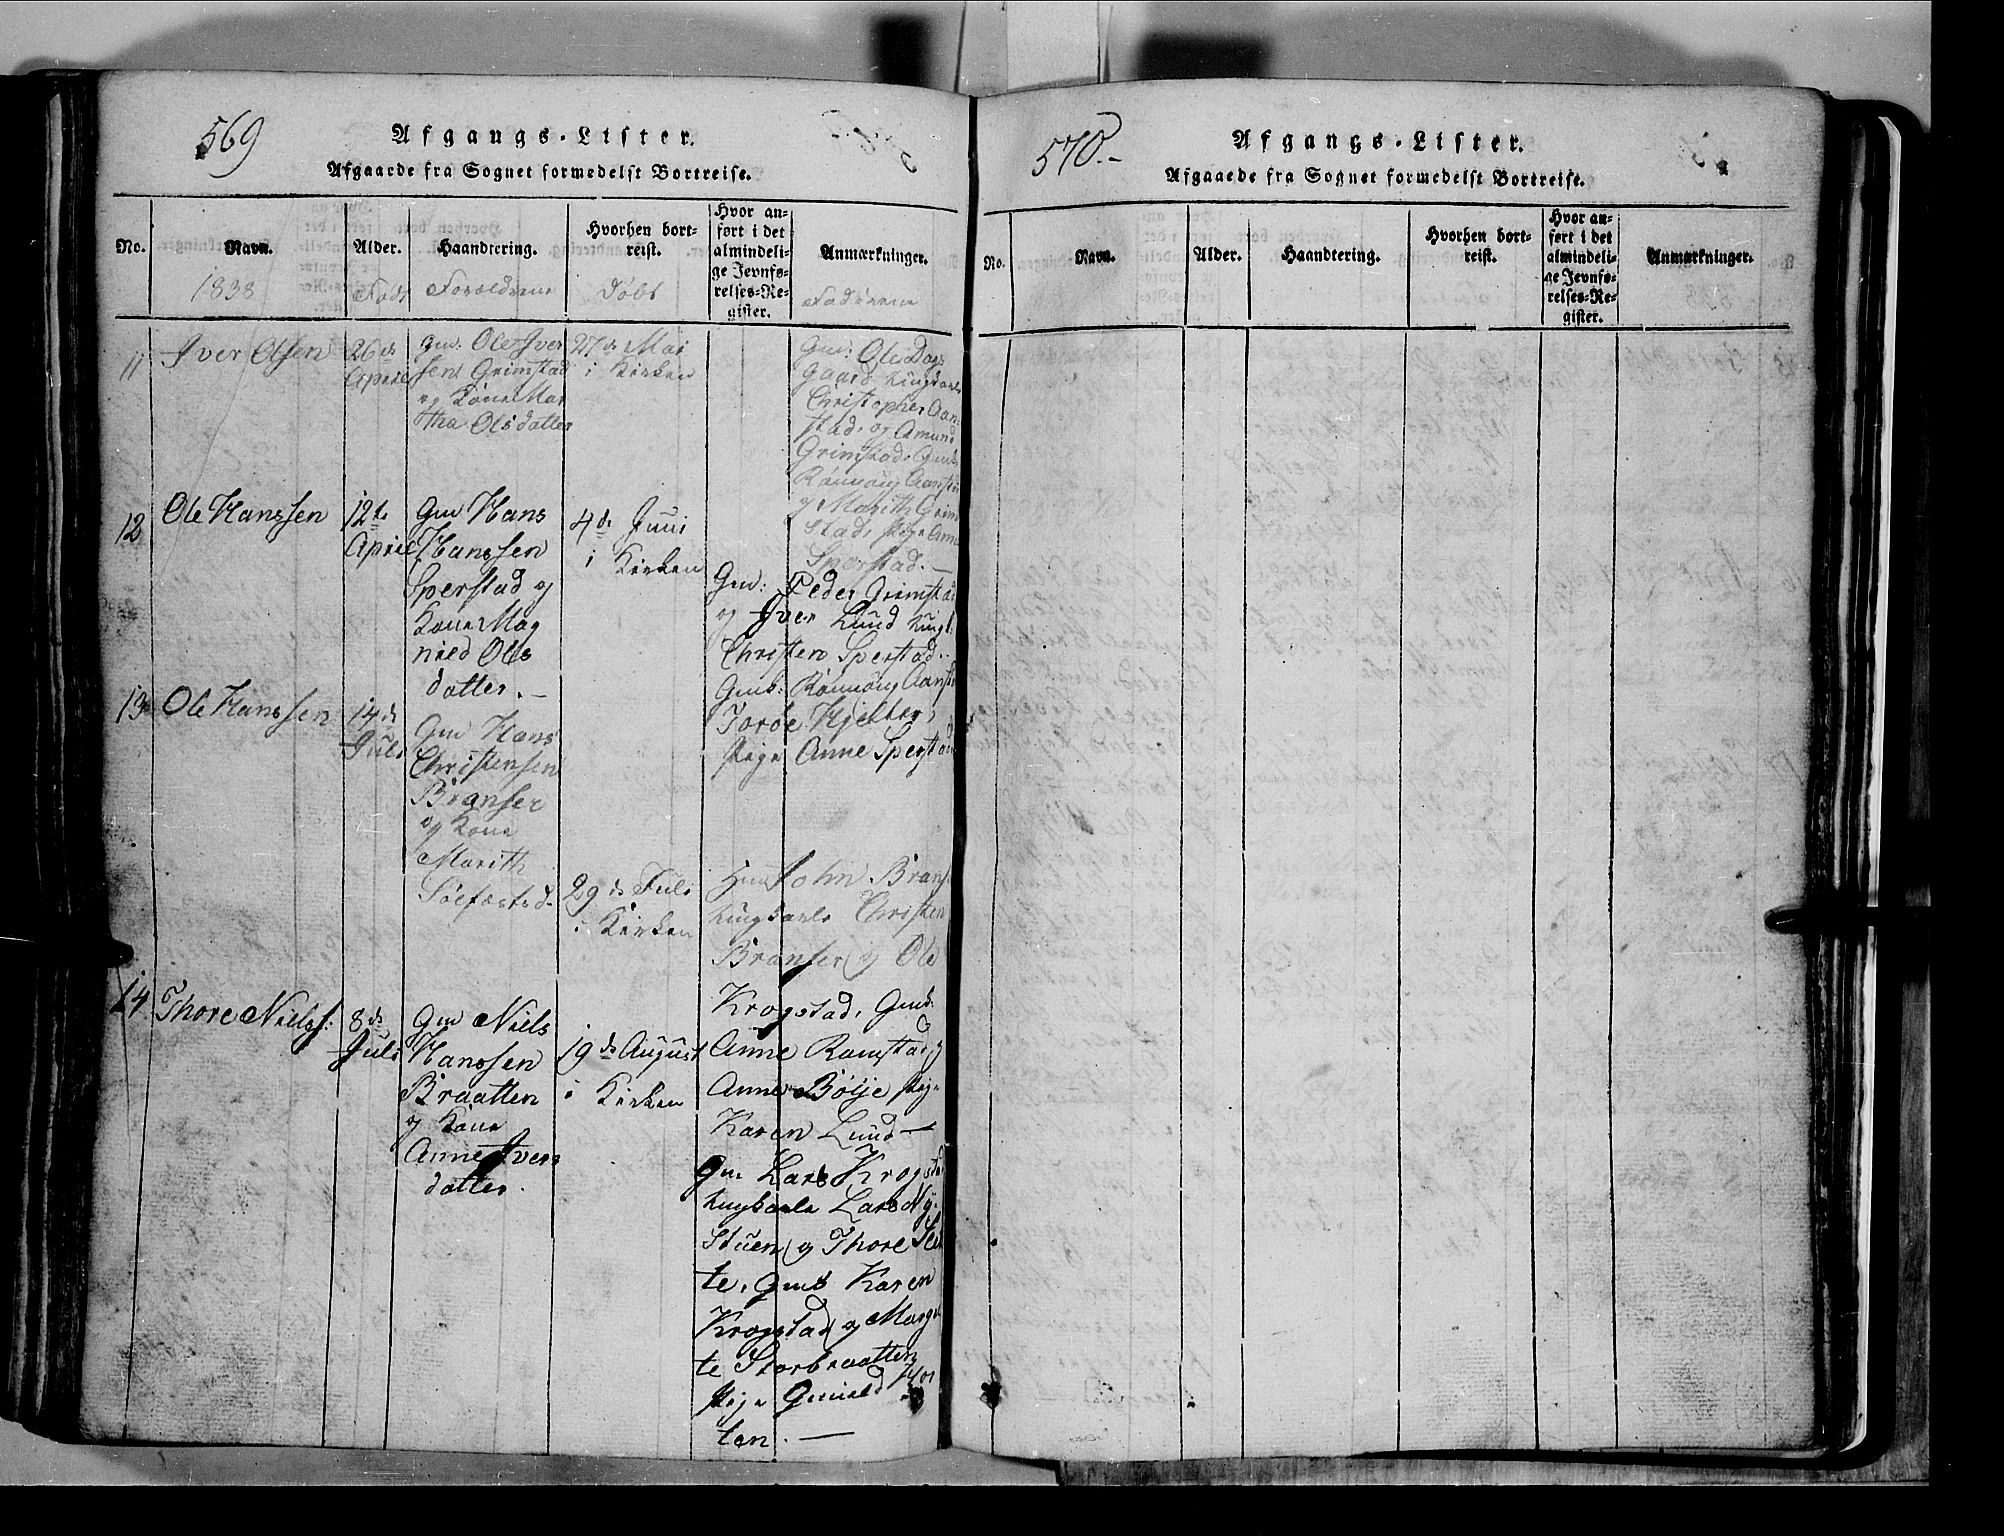 569
Afgangs-Lister.
Afgaaede fra Sognet formedelst Bortreise.
No.
Navn.
Alder.
Haandtering.
Hvorhen bort-
reist.
Hvor an-
ført i det
almindeli-
ge Jevnfø-
relses-Re-
gister.
Anmærkninger.
1838
Født
Forældrene
Døbt
Fadderne
11
Iver Olsen
26de
April
Gm: Ole Iver
sen Grimstad
og Kone Mar
tha Olsdatter
27de Mai
i Kirken
Gm: Ole Dag
gaard Ungkarle
Christopher Aan
stad, og Amund
Grimstad, Gmk:
Rønnoug Aanstad
og Marith Grim
stad, Pige Anne
Sperstad. —
12
Ole Hanssen
12te
April
Gm Hans
Hanssen
Sperstad og
Kone Mag
nild Ols
datter. —
4de Juni
i Kirken
Gm: Peder Grimstad
og Iver Lund Ungk:
Christen Sperstad.
Gmk: Rønnoug Aanst
Torøe Hjelter,
Pige Anne Sperstad
13
Ole Hanssen
14de
Juli
Gm Hans
Christensen
Bransér
og Kone
Marith
Solfæstd.
29de Juli
i Kirken
Gm John Brans
Ungkarle Christen
Bransér og Ole
Krogstad, Gmk:
Anne Ramstad og
Anne Bölje Pige
Karen Lund —
14
Thore Nielss:
8de
Juli
Gm Niels
Hanssen
Braatten
og Kone
Anne Ivers
datter.
19de August
i Kirken
Gm Lars Krogstad
Ungkarle Lars Ny-
stuen og Thore Slet
te, Gmk Karen
Krogstad og Margit
te Storbraatten
Pige Gunild
ten. —
570.-
Afgangs-Lister.
Afgaaede fra Sognet formedelst Bortreise.
No.
Navn.
Alder.
Haandtering.
Hvorhen bort-
reist.
Hvor an-
ført i det
almindeli-
ge Jevnfø-
relses-Re-
gister.
Anmærkninger.